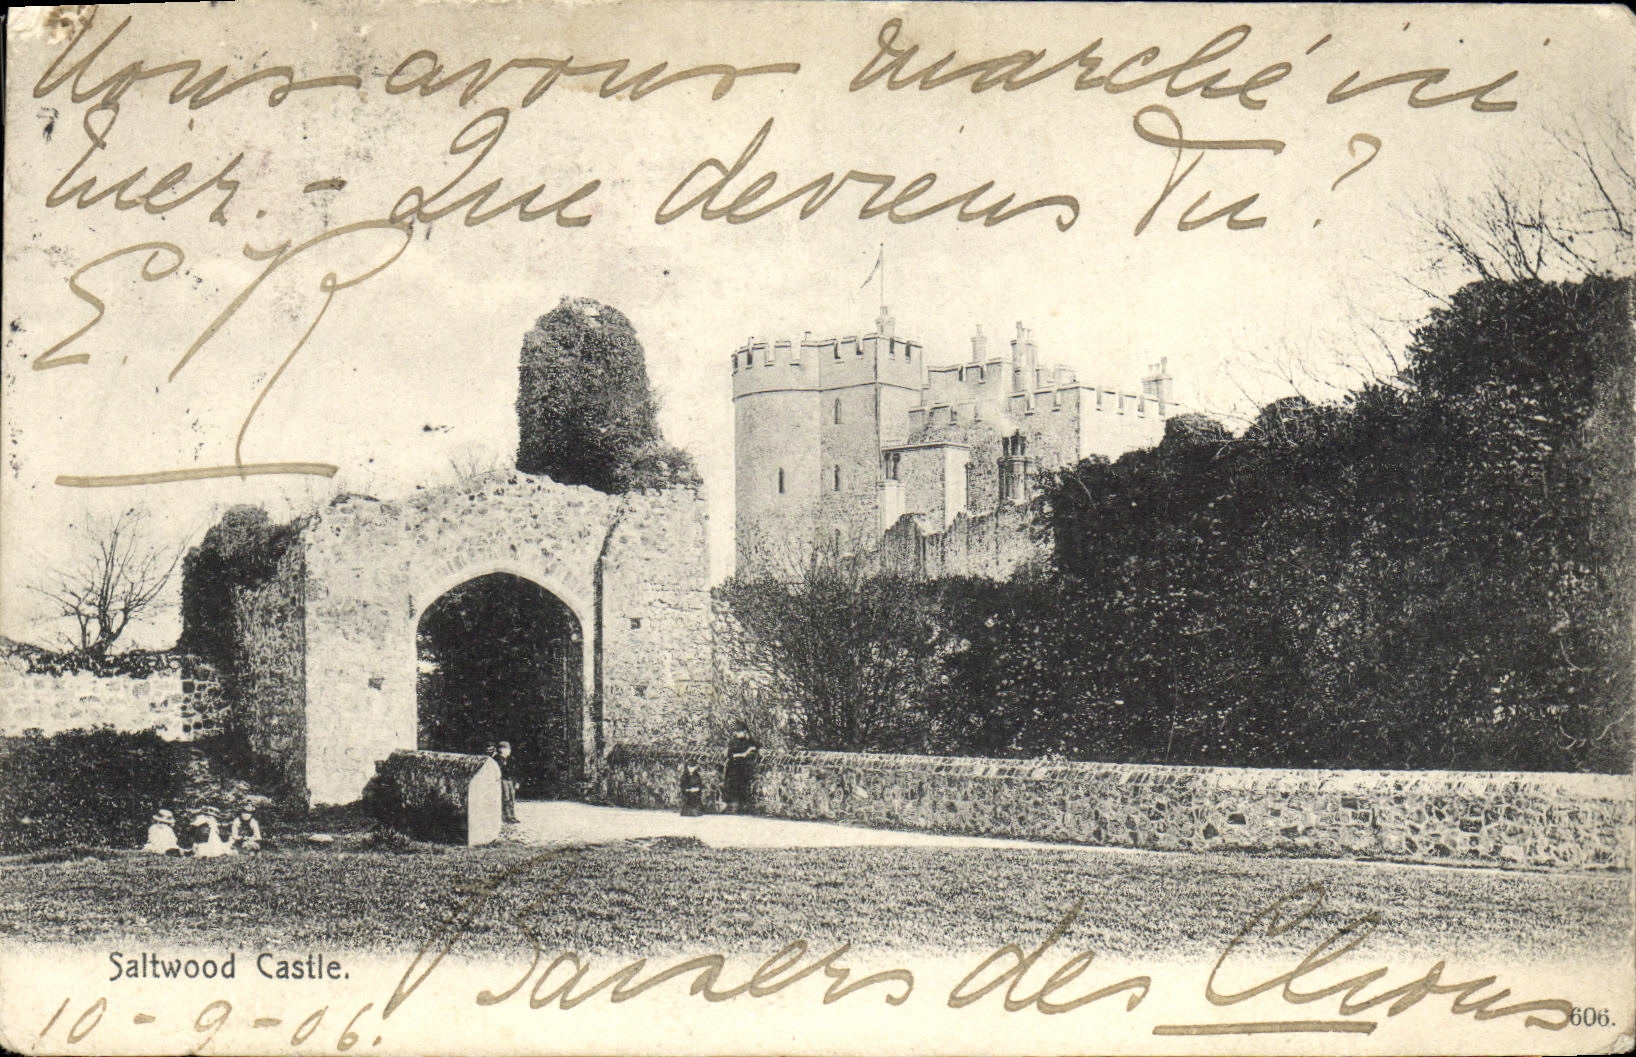 Nous avons marché ici
hier. - Que deviens Tu?
E. R
Baisers des Chous
Saltwood Castle.
10 - 9 - 06.
606.